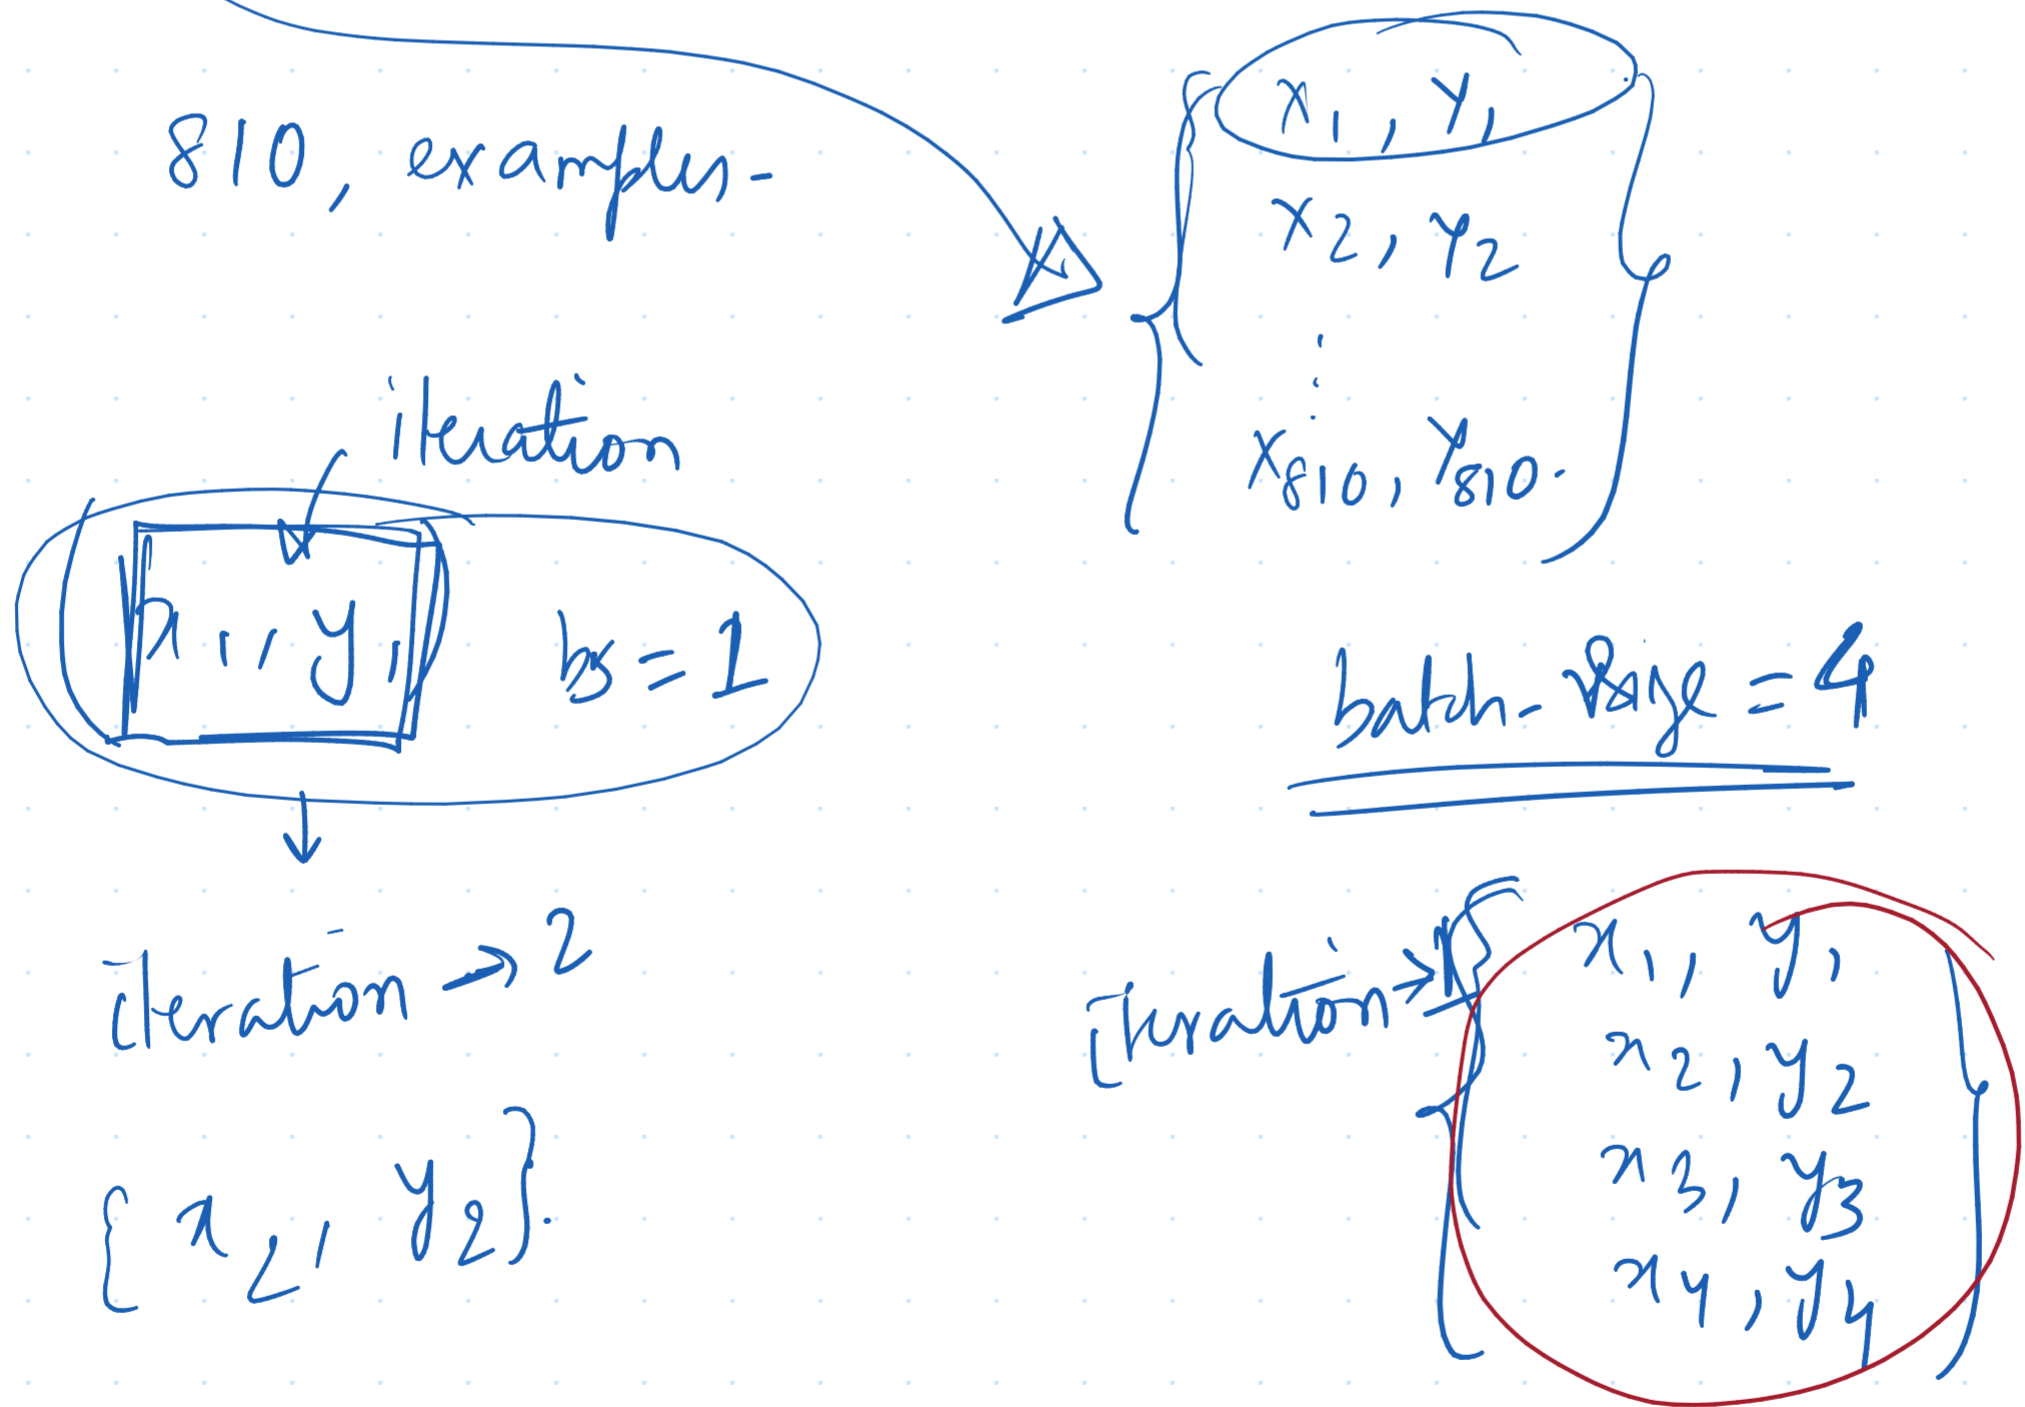 810, examples.
x₁, y₁
x₂, y₂
⋮
x₈₁₀, y₈₁₀.
iteration
x₁, y₁ bs = 1
batch-size = 4
iteration → 2
{x₂, y₂}.
iteration → 1
x₁, y₁
x₂, y₂
x₃, y₃
x₄, y₄